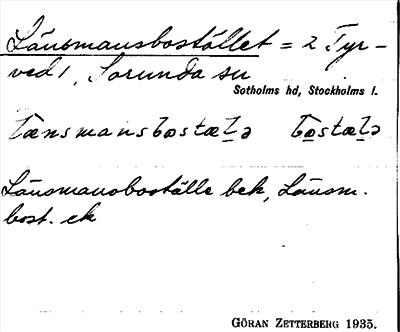 Länsmansbostället = 2 Tyr-
ved 1, Sorunda sn
Sotholms hd, Stockholms l.
Länsmansboställe bek, Länsm.
bost. ek
GÖRAN ZETTERBERG 1935.